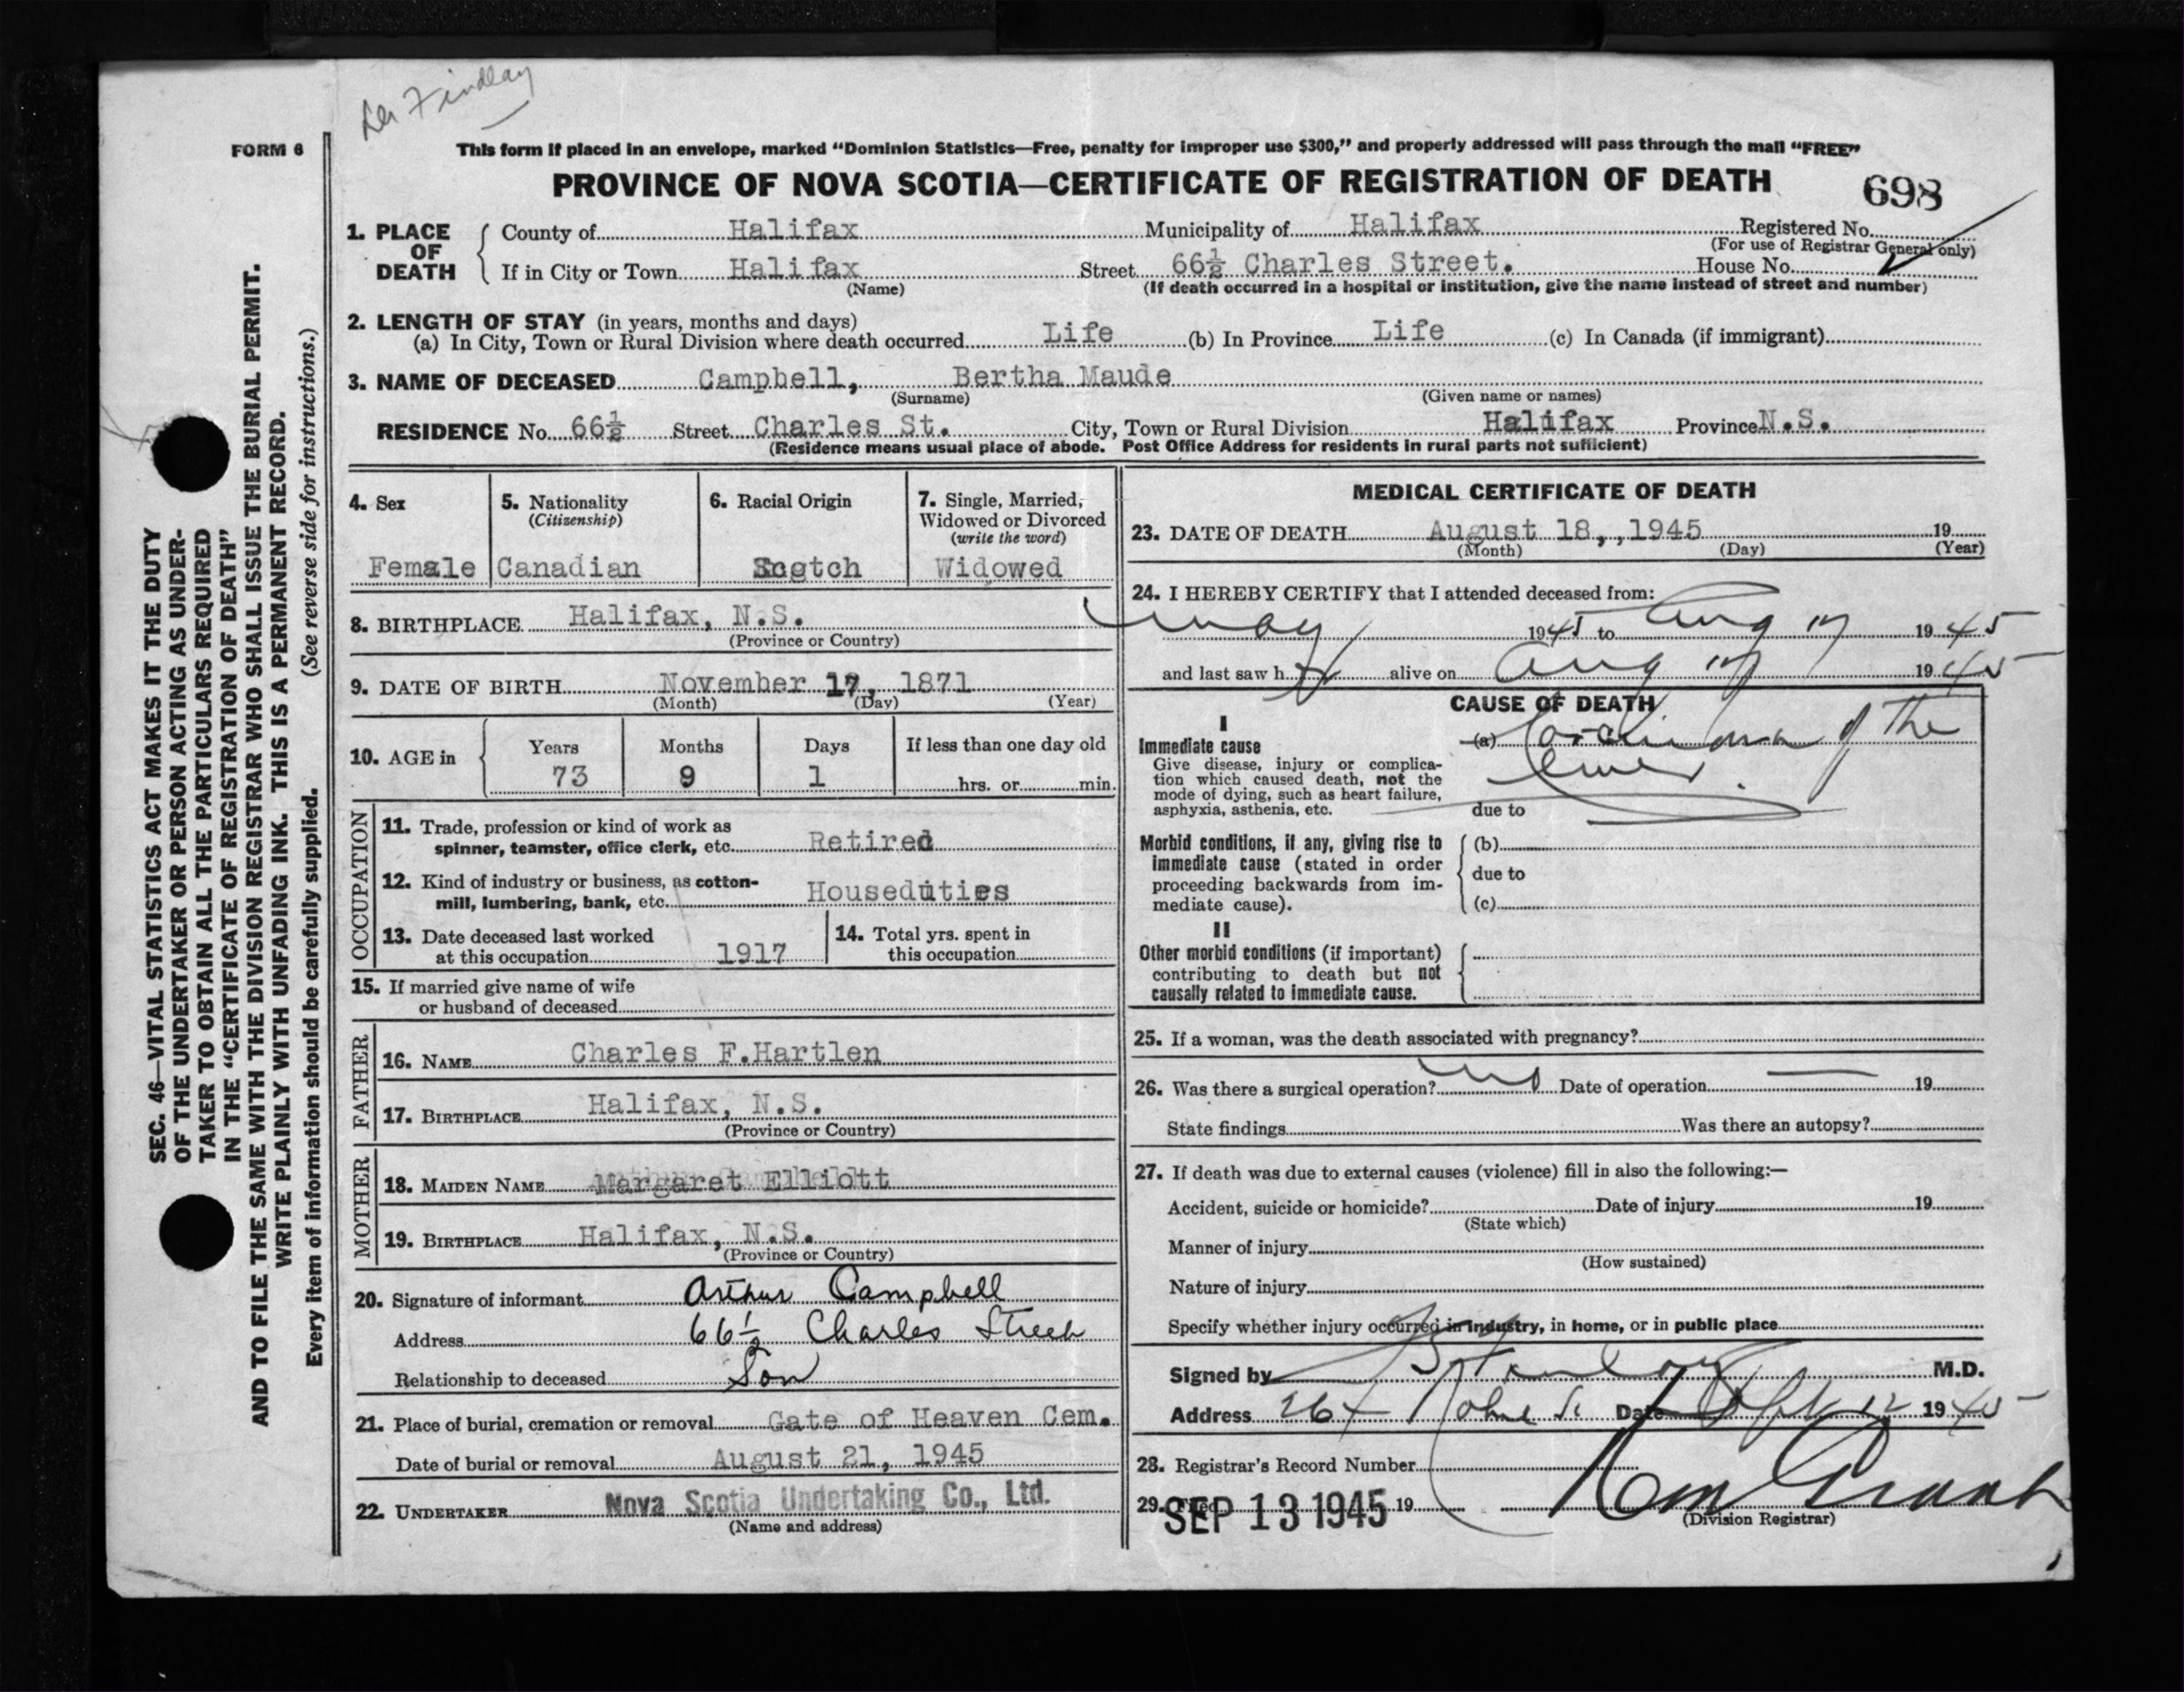 Dr Findlay
FORM 6
This form if placed in an envelope, marked "Dominion Statistics—Free, penalty for improper use $300," and properly addressed will pass through the mail "FREE"
PROVINCE OF NOVA SCOTIA—CERTIFICATE OF REGISTRATION OF DEATH
698
1. PLACE OF DEATH
County of Halifax Municipality of Halifax Registered No.
(For use of Registrar General only)
If in City or Town Halifax Street 66½ Charles Street. House No.
(Name) (If death occurred in a hospital or institution, give the name instead of street and number)
2. LENGTH OF STAY (in years, months and days)
(a) In City, Town or Rural Division where death occurred Life (b) In Province Life (c) In Canada (if immigrant)
3. NAME OF DECEASED Campbell, Bertha Maude
(Surname) (Given name or names)
RESIDENCE No. 66½ Street Charles St. City, Town or Rural Division Halifax Province N.S.
(Residence means usual place of abode. Post Office Address for residents in rural parts not sufficient)
4. Sex
Female
5. Nationality
(Citizenship)
Canadian
6. Racial Origin
Scotch
7. Single, Married,
Widowed or Divorced
(write the word)
Widowed
8. BIRTHPLACE Halifax, N.S.
(Province or Country)
9. DATE OF BIRTH November 17, 1871
(Month) (Day) (Year)
10. AGE in
Years Months Days If less than one day old
73 9 1 hrs. or min.
OCCUPATION
11. Trade, profession or kind of work as
spinner, teamster, office clerk, etc. Retired
12. Kind of industry or business, as cotton-
mill, lumbering, bank, etc. Houseduties
13. Date deceased last worked
at this occupation 1917
14. Total yrs. spent in
this occupation
15. If married give name of wife
or husband of deceased
FATHER
16. NAME Charles F.Hartlen
17. BIRTHPLACE Halifax, N.S.
(Province or Country)
MOTHER
18. MAIDEN NAME Margaret Elliott
19. BIRTHPLACE Halifax, N.S.
(Province or Country)
20. Signature of informant Arthur Campbell
Address 66½ Charles Street
Relationship to deceased Son
21. Place of burial, cremation or removal Gate of Heaven Cem.
Date of burial or removal August 21, 1945
22. UNDERTAKER Nova Scotia Undertaking Co., Ltd.
(Name and address)
MEDICAL CERTIFICATE OF DEATH
23. DATE OF DEATH August 18,,1945 19
(Month) (Day) (Year)
24. I HEREBY CERTIFY that I attended deceased from:
May 1945 to Aug 17 1945
and last saw h alive on Aug 17 1945
CAUSE OF DEATH
I
Immediate cause
Give disease, injury or complica-
tion which caused death, not the
mode of dying, such as heart failure,
asphyxia, asthenia, etc.
(a) of the
due to
Morbid conditions, if any, giving rise to
immediate cause (stated in order
proceeding backwards from im-
mediate cause).
(b)
due to
(c)
II
Other morbid conditions (if important)
contributing to death but not
causally related to immediate cause.
25. If a woman, was the death associated with pregnancy?
26. Was there a surgical operation? no Date of operation — 19
State findings Was there an autopsy?
27. If death was due to external causes (violence) fill in also the following:—
Accident, suicide or homicide? Date of injury 19
(State which)
Manner of injury
(How sustained)
Nature of injury
Specify whether injury occurred in industry, in home, or in public place
Signed by M.D.
Address Date Sept 12 1945
28. Registrar's Record Number
29. Filed SEP 13 1945 19
(Division Registrar)
SEC. 46—VITAL STATISTICS ACT MAKES IT THE DUTY
OF THE UNDERTAKER OR PERSON ACTING AS UNDER-
TAKER TO OBTAIN ALL THE PARTICULARS REQUIRED
IN THE "CERTIFICATE OF REGISTRATION OF DEATH"
AND TO FILE THE SAME WITH THE DIVISION REGISTRAR WHO SHALL ISSUE THE BURIAL PERMIT.
WRITE PLAINLY WITH UNFADING INK. THIS IS A PERMANENT RECORD.
Every item of information should be carefully supplied. (See reverse side for instructions.)